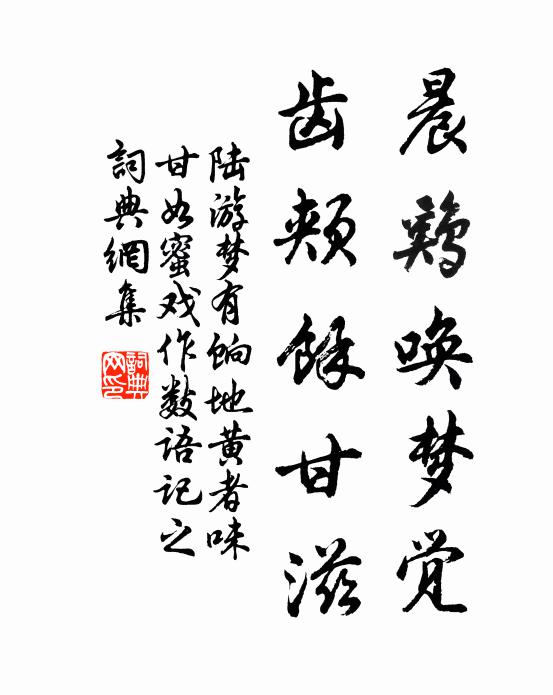 晨鷄唤梦觉
齿颊餘甘滋
陆游梦有饷地黄者味
甘如蜜戏作数语记之
詞典網集
詞典
网印